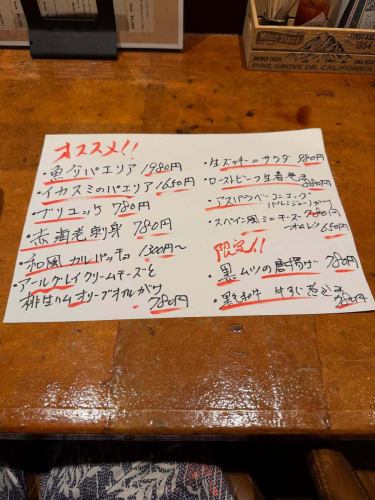 オススメ!!
・魚介パエリア 1980円
・イカスミのパエリア 1650円
・ブリユッケ 780円
・赤海老刺身 780円
・和風カルパッチョ 1300円〜
・アールグレイクリームチーズと
桃生ハムオリーブオイルがけ
780円
・生ズッキーニサラダ 880円
・ローストビーフ生春巻き
880円
・アスパラベーコンエッグ
・スペイン風ミニチーズ 780円
オムレツ 650円
限定!!
・黒ムツの唐揚げ 780円
・黒毛和牛 牛すじ煮込み
780円
PINE GROVE DR. CALIFORNIA